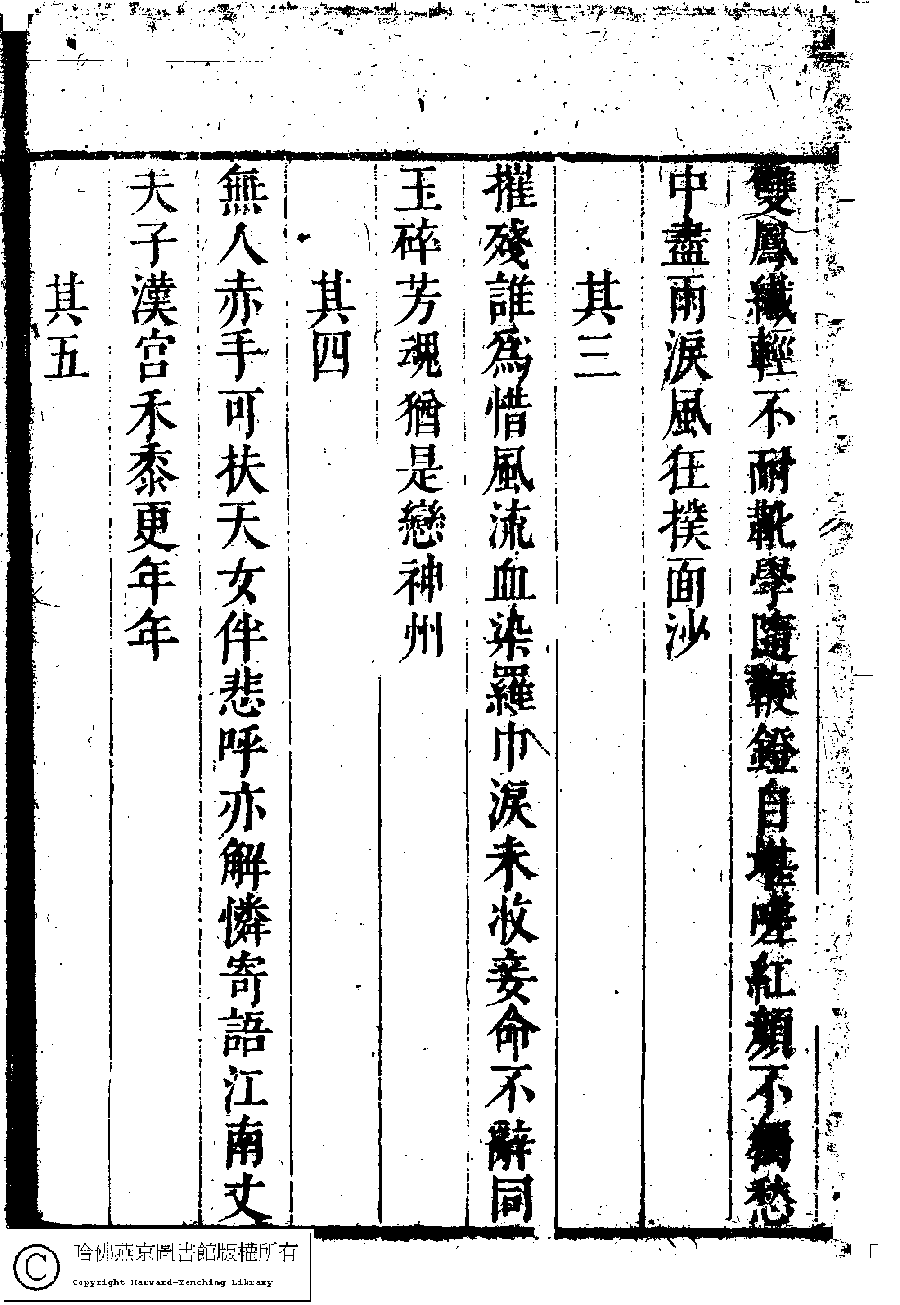 雙鳳纖輕不耐靴學隨鞭鐙自堪嗟紅顏不獨愁
中盡雨淚風狂撲面沙
其三
摧殘誰為惜風流血染羅巾淚未收妾命不辭同
玉碎芳魂猶是戀神州
其四
無人赤手可扶天女伴悲呼亦解憐寄語江南丈
夫子漢宮禾黍更年年
其五
哈佛燕京圖書館版權所有
Copyright Harvard-Yenching Library